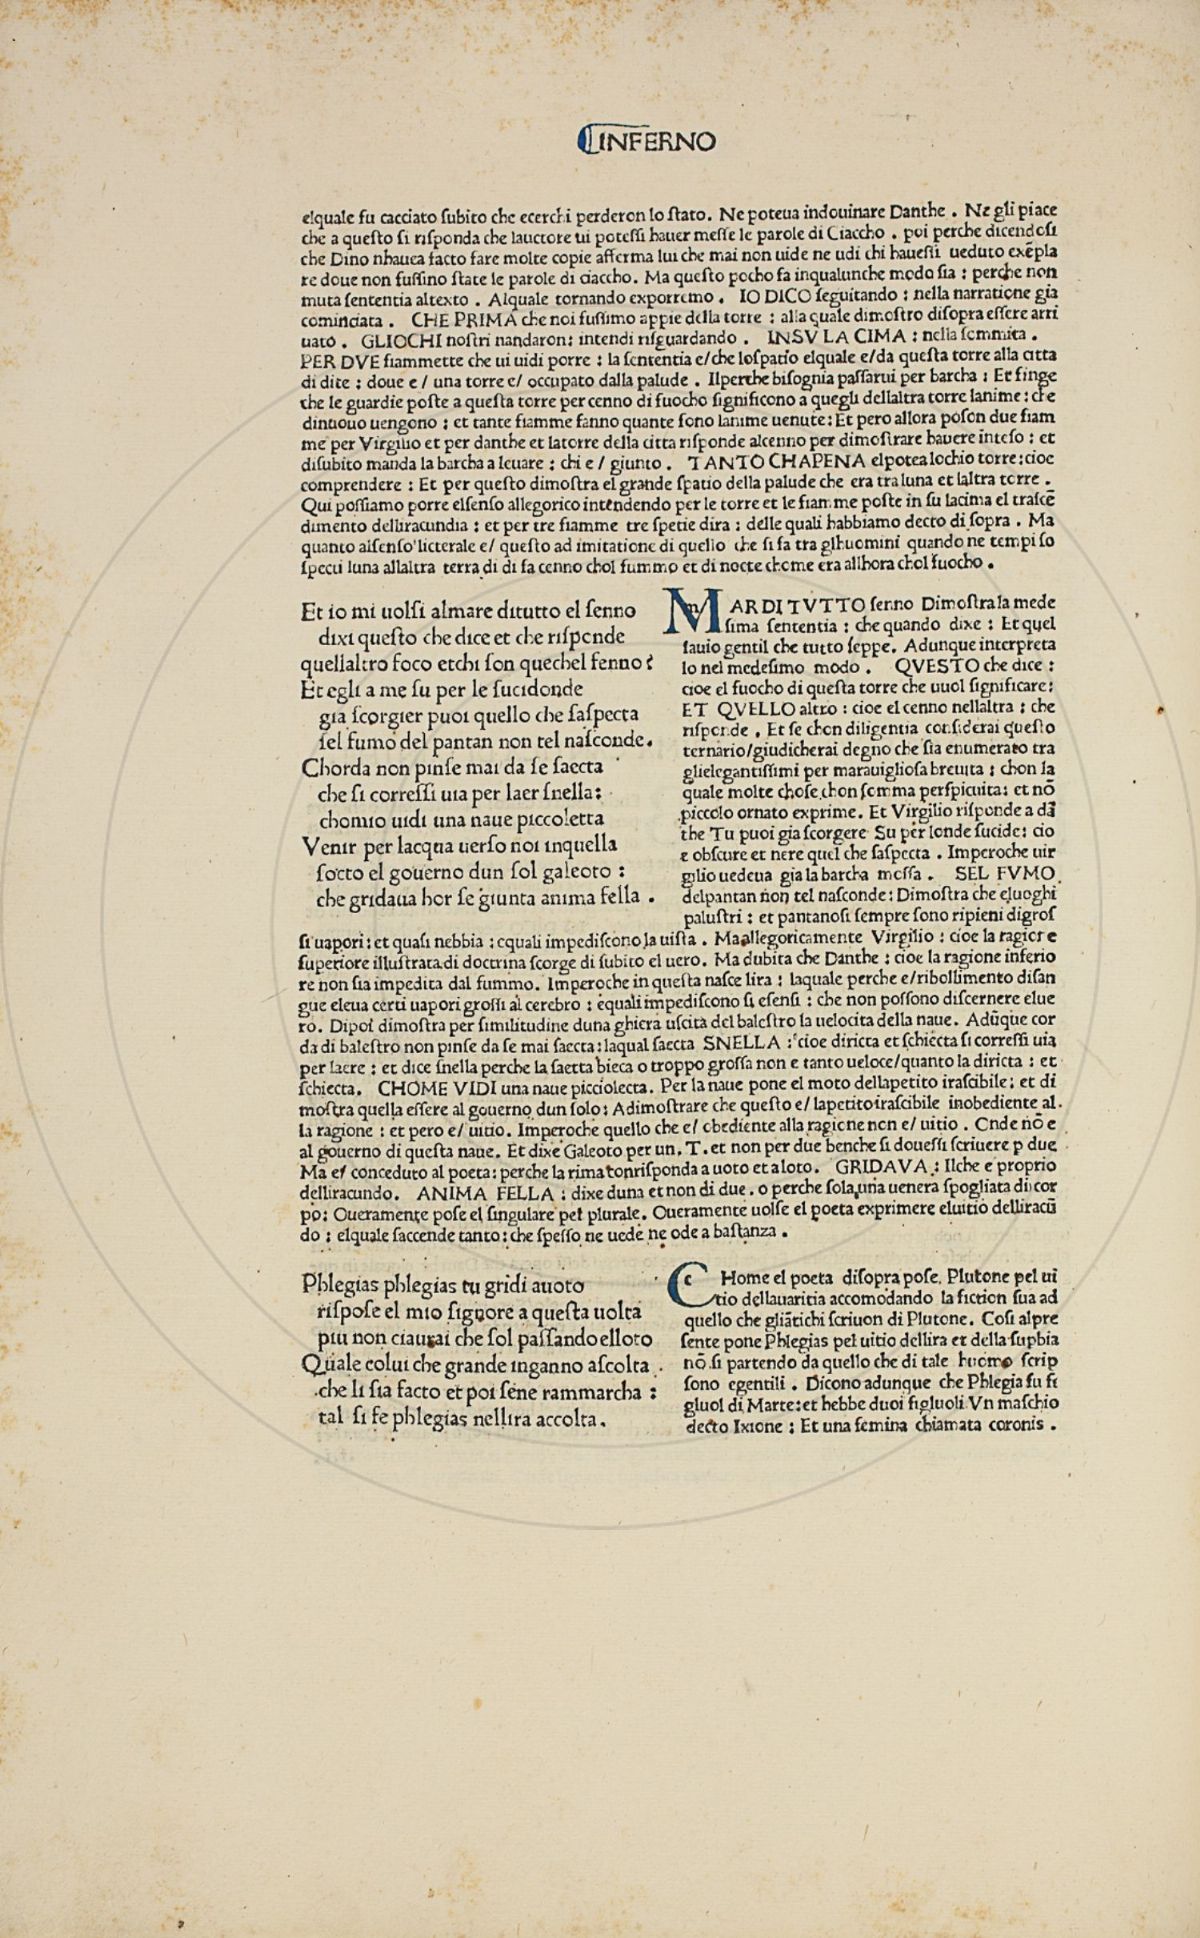 INFERNO
elquale fu cacciato ſubito che ecerchi perderon lo ſtato. Ne poteua indouinare Danthe . Ne gli piace
che a queſto ſi riſponda che lauctore ui poteſſi hauer meſſe le parole di Ciaccho . poi perche dicendoſi
che Dino nhauea facto fare molte copie afferma lui che mai non uide ne udi chi haueſſi ueduto exẽpla
re doue non fuſſino ſtate le parole di ciaccho. Ma queſto pocho fa inqualunche modo ſia : perche non
muta ſententia altexto . Alquale tornando exporremo . IO DICO ſeguitando : nella narratione gia
cominciata . CHE PRIMA che noi fuſſimo appie della torre : alla quale dimoſtro diſopra eſſere arri
uato . GLIOCHI noſtri nandaron: intendi riſguardando . INSV LA CIMA : nella ſommita .
PER DVE fiammette che ui uidi porre : la ſententia e/che loſpatio elquale e/da queſta torre alla citta
di dite : doue e / una torre e/ occupato dalla palude . Ilperche biſognia paſſarui per barcha : Et finge
che le guardie poſte a queſta torre per cenno di fuocho ſignificono a quegli dellaltra torre lanime : che
dinuouo uengono : et tante fiamme fanno quante ſono lanime uenute: Et pero allora poſon due fiam
me per Virgilio et per danthe et latorre della citta riſponde alcenno per dimoſtrare hauere inteſo : et
diſubito manda la barcha a leuare : chi e / giunto . TANTO CHAPENA el potea lochio torre: cioe
comprendere : Et per queſto dimoſtra el grande ſpatio della palude che era tra luna et laltra torre .
Qui poſſiamo porre elſenſo allegorico intendendo per le torre et le fiamme poſte in ſu lacima el traſcẽ
dimento delliracundia : et per tre fiamme tre ſpetie dira : delle quali habbiamo decto di ſopra . Ma
quanto alſenſo licterale e/ queſto ad imitatione di quello che ſi fa tra glhuomini quando ne tempi ſo
ſpecti luna allaltra terra di di fa cenno chol fummo et di nocte chome era allhora chol fuocho .
Et io mi uolſi almare ditutto el ſenno
dixi queſto che dice et che riſponde
quellaltro foco etchi ſon quechel fenno?
Et egli a me ſu per le ſucidonde
gia ſcorgier puoi quello che ſaſpecta
ſel fumo del pantan non tel naſconde.
Chorda non pinſe mai da ſe ſaecta
che ſi correſſi uia per laer ſnella:
chomio uidi una naue piccoletta
Venir per lacqua uerſo noi inquella
ſocto el gouerno dun ſol galeoto :
che gridaua hor ſe giunta anima fella .
M
m
AR DI TVTTO ſenno Dimoſtra la mede
ſima ſententia : che quando dixe : Et quel
ſauio gentil che tutto ſeppe. Adunque interpreta
lo nel medeſimo modo . QVESTO che dice :
cioe el fuocho di queſta torre che uuol ſignificare:
ET QVELLO altro : cioe el cenno nellaltra : che
riſponde . Et ſe chon diligentia conſiderai queſto
ternario/giudicherai degno che ſia enumerato tra
glielegantiſſimi per marauiglioſa breuita : chon la
quale molte choſe chon ſomma perſpicuita: et nõ
piccolo ornato exprime. Et Virgilio riſponde a dã
the Tu puoi gia ſcorgere Su per londe ſucide: cio
e obſcure et nere quel che ſaſpecta . Imperoche uir
gilio uedeua gia la barcha moſſa . SEL FVMO
delpantan non tel naſconde: Dimoſtra che eluoghi
paluſtri : et pantanoſi ſempre ſono ripieni digroſ
ſi uapori: et quaſi nebbia : equali impediſcono la uiſta . Ma allegoricamente Virgilio : cioe la ragione
ſuperiore illuſtrata di doctrina ſcorge di ſubito el uero. Ma dubita che Danthe : cioe la ragione inferio
re non ſia impedita dal fummo. Imperoche in queſta naſce lira : laquale perche e/ribollimento diſan
gue eleua certi uapori groſſi al cerebro : equali impediſcono ſi eſenſi : che non poſſono diſcernere elue
ro. Dipoi dimoſtra per ſimilitudine duna ghiera uſcita del baleſtro la uelocita della naue. Adũque cor
da di baleſtro non pinſe da ſe mai ſaecta: laqual ſaecta SNELLA : cioe diricta et ſchiecta ſi correſſi uia
per laere : et dice ſnella perche la ſaetta bieca o troppo groſſa non e tanto ueloce/quanto la diricta : et
ſchiecta. CHOME VIDI una naue picciolecta. Per la naue pone el moto dellapetito iraſcibile: et di
moſtra quella eſſere al gouerno dun ſolo: Adimoſtrare che queſto e/ lapetito iraſcibile inobediente al
la ragione : et pero e/ uitio. Imperoche quello che e/ obediente alla ragione non e/ uitio. Onde nõ e
al gouerno di queſta naue. Et dixe Galeoto per un. T. et non per due benche ſi doueſſi ſcriuere p due
Ma e/ conceduto al poeta: perche la rima conriſponda a uoto et a loto. GRIDAVA : Ilche e proprio
delliracundo. ANIMA FELLA : dixe duna et non di due. o perche ſola una uenera ſpogliata di cor
po: Oueramente poſe el ſingulare pel plurale. Oueramente uolſe el poeta exprimere eluitio delliracũ
do : elquale ſaccende tanto: che ſpeſſo ne uede ne ode a baſtanza .
Phlegias phlegias tu gridi auoto
riſpoſe el mio ſignore a queſta uolta
piu non ciaurai che ſol paſſando elloto
Quale colui che grande inganno aſcolta .
che li ſia facto et poi ſene rammarcha :
tal ſi fe phlegias nellira accolta.
C
c
Home el poeta diſopra poſe Plutone pel ui
tio dellauaritia accomodando la fiction ſua ad
quello che gliãtichi ſcriuon di Plutone. Coſi alpre
ſente pone Phlegias pel uitio dellira et della ſupbia
nõ ſi partendo da quello che di tale huomo ſcrip
ſono egentili . Dicono adunque che Phlegia fu fi
gluol di Marte: et hebbe duoi figluoli Vn maſchio
decto Ixione : Et una femina chiamata coronis .